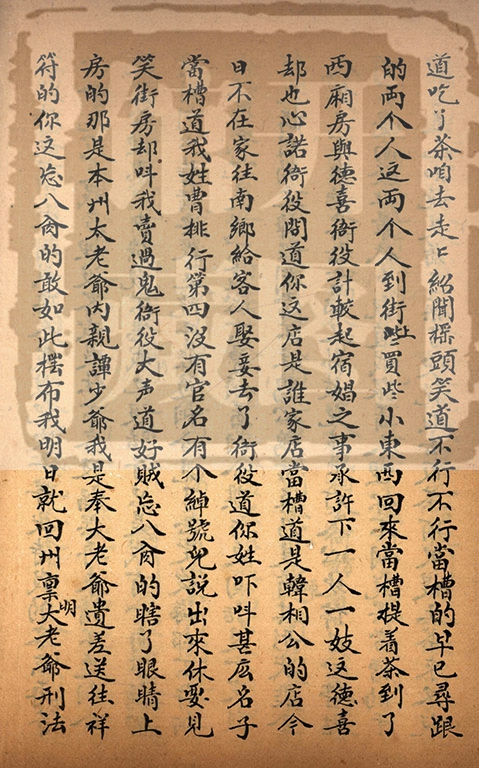 道吃了茶咱去走上紹聞搖頭笑道不行不行當槽的早已尋跟
的両个人这両个人到街上些買些小東西回來當槽提着茶到了
西廂房與德喜衙役計較起宿娼之事承許下一人一妓这德喜
却也心諾衙役問道你这店是誰家店當槽道是韓相公的店今
日不在家往南鄉給客人娶妾去了衙役道你姓吓呌甚庅名子
當槽道我姓曹排行第四沒有官名有个綽號兒説出來休要見
笑街房却呌我賣過鬼衙役大声道好賊忘八肏的瞎了眼睛上
房的那是本州太老爺内親譚少爺我是奉大老爺遣差送往祥
符的你这忘八肏的敢如此摆布我明日就回州稟明大老爺刑法